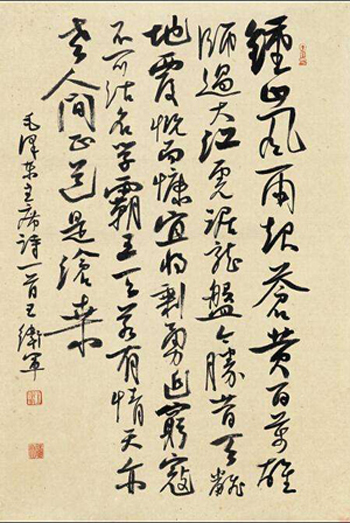 鍾山风雨起蒼黄百万雄
师過大江虎踞龙盤今勝昔天翻
地覆慨而慷宜将剩勇追窮寇
不可沽名学霸王天若有情天亦
老人间正道是滄桑
毛泽东主席诗一首王衛軍